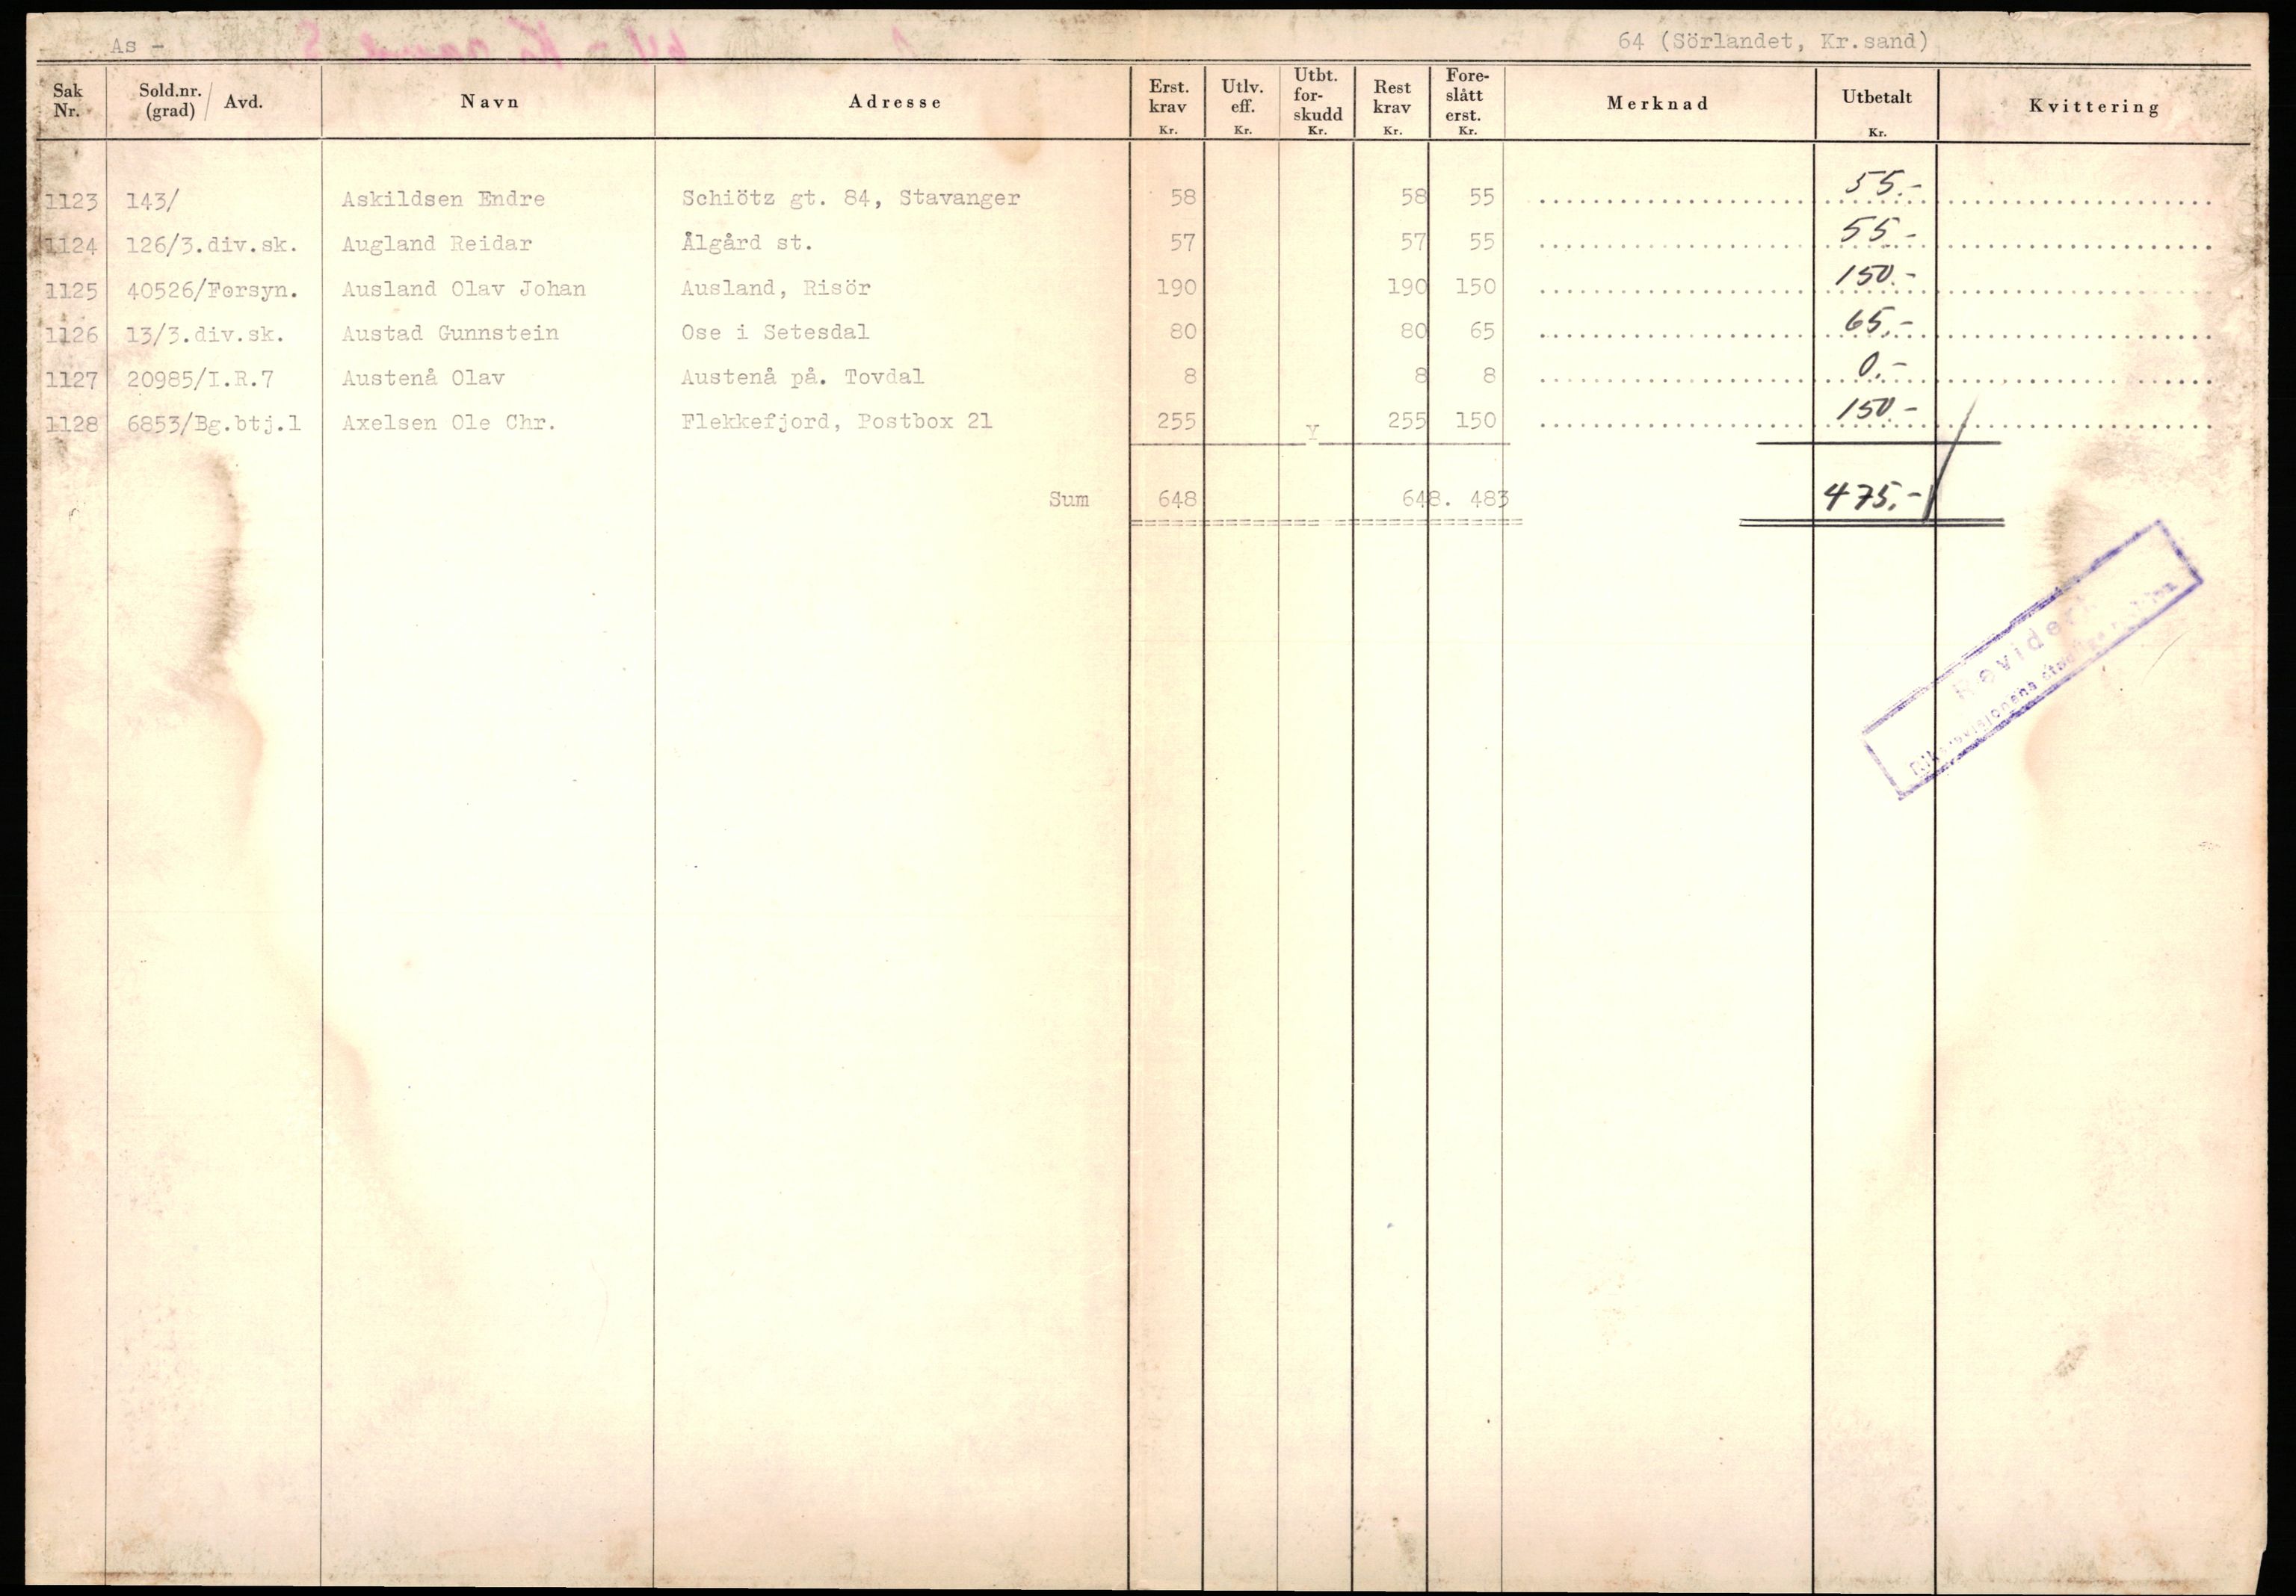 As -
64 (Sörlandet, Kr.sand)
Sak Nr. Sold.nr. (grad) / Avd. Navn Adresse Erst. krav Kr. Utlv. eff. Kr. Utbt. for- skudd Kr. Rest krav Kr. Fore- slått erst. Kr. Merknad Utbetalt Kr. Kvittering
1123 143/ Askildsen Endre Schiötz gt. 84, Stavanger 58 58 55 55.-
1124 126/3.div.sk. Augland Reidar Ålgård st. 57 57 55 55-
1125 40526/Forsyn. Ausland Olav Johan Ausland, Risör 190 190 150 150.-
1126 13/3.div.sk. Austad Gunnstein Ose i Setesdal 80 80 65 65.-
1127 20985/I.R.7 Austenå Olav Austenå på. Tovdal 8 8 8 0.-
1128 6853/Bg.btj.1 Axelsen Ole Chr. Flekkefjord, Postbox 21 255 Y 255 150 150.-
Sum 648 648. 483 475.-
Revidert